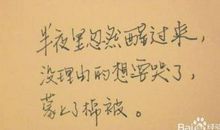 半夜里忽然醒过来，
没理由的想要哭了，
蒙上了棉被。
Bai